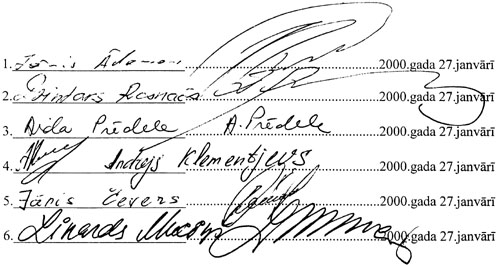 1. Jānis Ādamsons 2000.gada 27.janvārī
2. Dzintars Rasnačs 2000.gada 27.janvārī
3. Aida Prēdele A.Prēdele 2000.gada 27.janvārī
4. Andrejs Klementjevs 2000.gada 27.janvārī
5. Jānis Čevers 2000.gada 27.janvārī
6. Linards Muciņš 2000.gada 27.janvārī